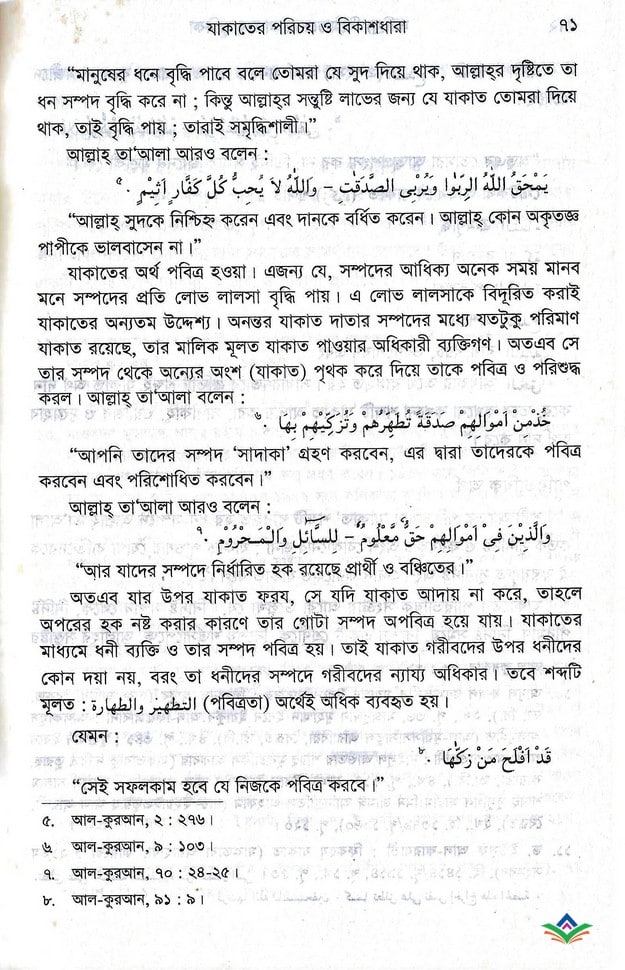 যাকাতের পরিচয় ও বিকাশধারা ৭১
“মানুষের ধনে বৃদ্ধি পাবে বলে তোমরা যে সুদ দিয়ে থাক, আল্লাহ্‌র দৃষ্টিতে তা
ধন সম্পদ বৃদ্ধি করে না ; কিন্তু আল্লাহ্‌র সন্তুষ্টি লাভের জন্য যে যাকাত তোমরা দিয়ে
থাক, তাই বৃদ্ধি পায় ; তারাই সমৃদ্ধিশালী।”
আল্লাহ্ তা‘আলা আরও বলেন :
يَمْحَقُ اللّٰهُ الرِّبٰوا وَيُرْبِى الصَّدَقٰتِ – وَاللّٰهُ لاَ يُحِبُّ كُلَّ كَفَّارٍ اَثِيْمٍ . ৫
“আল্লাহ্ সুদকে নিশ্চিহ্ন করেন এবং দানকে বর্ধিত করেন। আল্লাহ্ কোন অকৃতজ্ঞ
পাপীকে ভালবাসেন না।”
যাকাতের অর্থ পবিত্র হওয়া। এজন্য যে, সম্পদের আধিক্য অনেক সময় মানব
মনে সম্পদের প্রতি লোভ লালসা বৃদ্ধি পায়। এ লোভ লালসাকে বিদূরিত করাই
যাকাতের অন্যতম উদ্দেশ্য। অনন্তর যাকাত দাতার সম্পদের মধ্যে যতটুকু পরিমাণ
যাকাত রয়েছে, তার মালিক মূলত যাকাত পাওয়ার অধিকারী ব্যক্তিগণ। অতএব সে
তার সম্পদ থেকে অন্যের অংশ (যাকাত) পৃথক করে দিয়ে তাকে পবিত্র ও পরিশুদ্ধ
করল। আল্লাহ্ তা‘আলা বলেন :
خُذْمِنْ اَمْوَالِهِمْ صَدَقَةً تُطَهِّرُهُمْ وَتُزَكِّيْهِمْ بِهَا . ৬
“আপনি তাদের সম্পদ ‘সাদাকা’ গ্রহণ করবেন, এর দ্বারা তাদেরকে পবিত্র
করবেন এবং পরিশোধিত করবেন।”
আল্লাহ্ তা‘আলা আরও বলেন :
وَالَّذِيْنَ فِىْ اَمْوَالِهِمْ حَقٌّ مَّعْلُوْمٌ – لِلسَّائِلِ وَالْمَحْرُوْمِ . ৭
“আর যাদের সম্পদে নির্ধারিত হক রয়েছে প্রার্থী ও বঞ্চিতের।”
অতএব যার উপর যাকাত ফরয, সে যদি যাকাত আদায় না করে, তাহলে
অপরের হক নষ্ট করার কারণে তার গোটা সম্পদ অপবিত্র হয়ে যায়। যাকাতের
মাধ্যমে ধনী ব্যক্তি ও তার সম্পদ পবিত্র হয়। তাই যাকাত গরীবদের উপর ধনীদের
কোন দয়া নয়, বরং তা ধনীদের সম্পদে গরীবদের ন্যায্য অধিকার। তবে শব্দটি
মূলত : التطهير والطهارة (পবিত্রতা) অর্থেই অধিক ব্যবহৃত হয়।
যেমন :
قَدْ اَفْلَحَ مَنْ زَكّٰهَا . ৮
“সেই সফলকাম হবে যে নিজকে পবিত্র করবে।”
৫. আল-কুরআন, ২ : ২৭৬।
৬ আল-কুরআন, ৯ : ১০৩।
৭. আল-কুরআন, ৭০ : ২৪-২৫।
৮. আল-কুরআন, ৯১ : ৯।